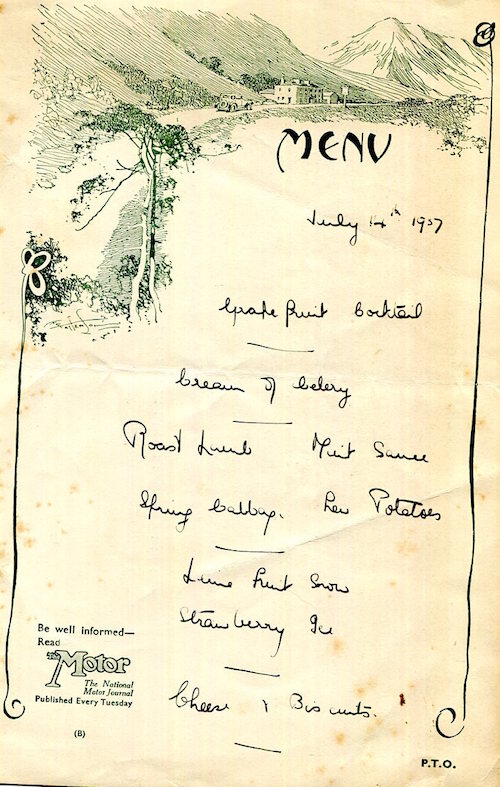 MENU
July 14th 1937
Grape fruit Cocktail
Cream of Celery
Roast Lamb Mint Sauce
Spring Cabbage. New Potatoes
Fruit Snow
Strawberry Ice
Cheese & Biscuits.
Be well informed—
Read
The Motor
The National
Motor Journal
Published Every Tuesday
(B)
P.T.O.